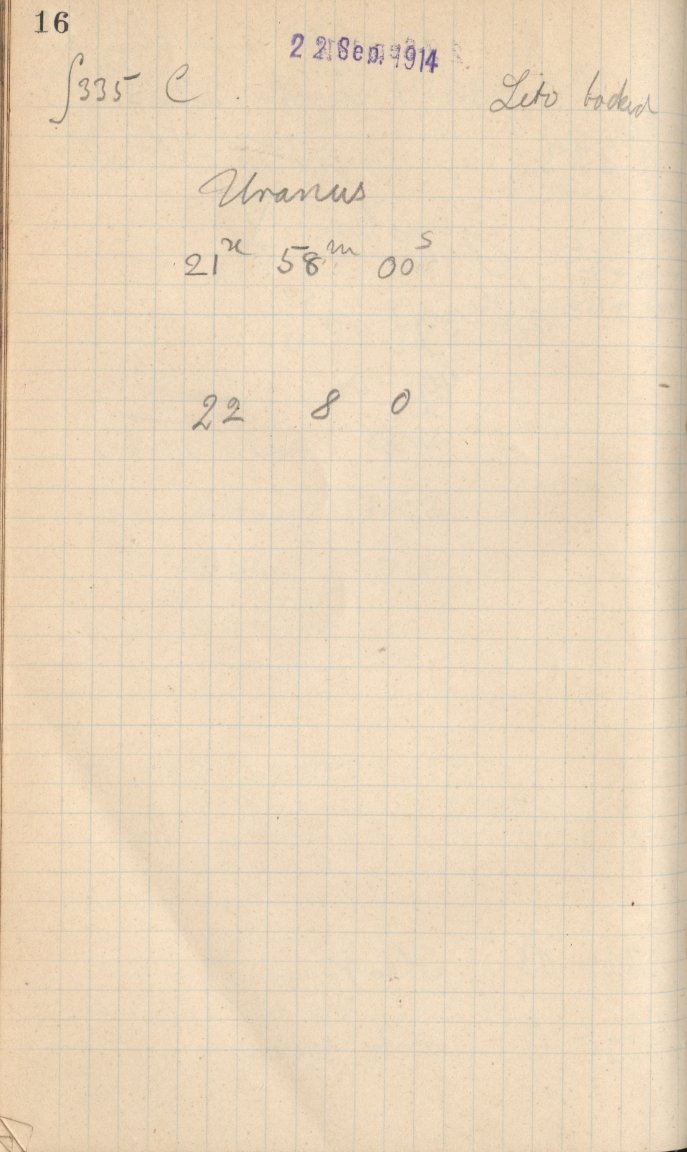 16
22 Sep. 1914
∫335 C
Leto backed
Uranus
21ʰ 58ᵐ 00ˢ
22 8 0